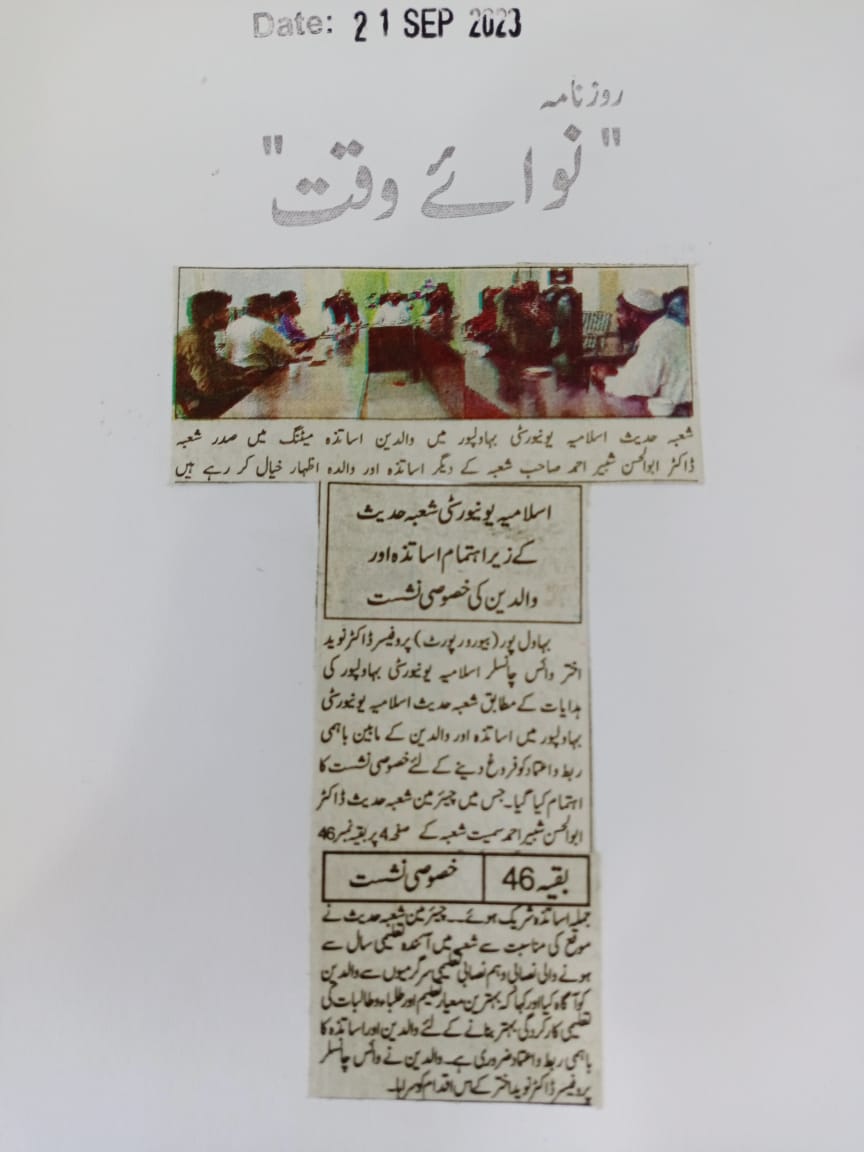 Date: 21 SEP 2023
روزنامہ
"نوائے وقت"
شعبہ حدیث اسلامیہ یونیورسٹی بہاولپور میں والدین اساتذہ میٹنگ میں صدر شعبہ
ڈاکٹر ابوالحسن شبیر احمد صاحب شعبہ کے دیگر اساتذہ اور والدہ اظہار خیال کر رہے ہیں
اسلامیہ یونیورسٹی شعبہ حدیث
کے زیر اہتمام اساتذہ اور
والدین کی خصوصی نشست
بہاول پور (بیورورپورٹ) پروفیسر ڈاکٹر نوید
اختر وائس چانسلر اسلامیہ یونیورسٹی بہاولپور کی
ہدایات کے مطابق شعبہ حدیث اسلامیہ یونیورسٹی
بہاولپور میں اساتذہ اور والدین کے مابین باہمی
ربط و اعتماد کو فروغ دینے کے لئے خصوصی نشست کا
اہتمام کیا گیا۔ جس میں چیئرمین شعبہ حدیث ڈاکٹر
ابوالحسن شبیر احمد سمیت شعبہ کے صفحہ 4 پر بقیہ نمبر 46
بقیہ 46 خصوصی نشست
جملہ اساتذہ شریک ہوئے۔۔ چیئرمین شعبہ حدیث نے
موقع کی مناسبت سے شعبہ میں آئندہ تعلیمی سال سے
ہونے والی نصابی و ہم نصابی تعلیمی سرگرمیوں سے والدین
کو آگاہ کیا اور کہا کہ بہترین معیار تعلیم اور طلباء و طالبات کی
تعلیمی کارکردگی بہتر بنانے کے لئے والدین اور اساتذہ کا
باہمی ربط و اعتماد ضروری ہے۔ والدین نے وائس چانسلر
پروفیسر ڈاکٹر نوید اختر کے اس اقدام کو سراہا۔